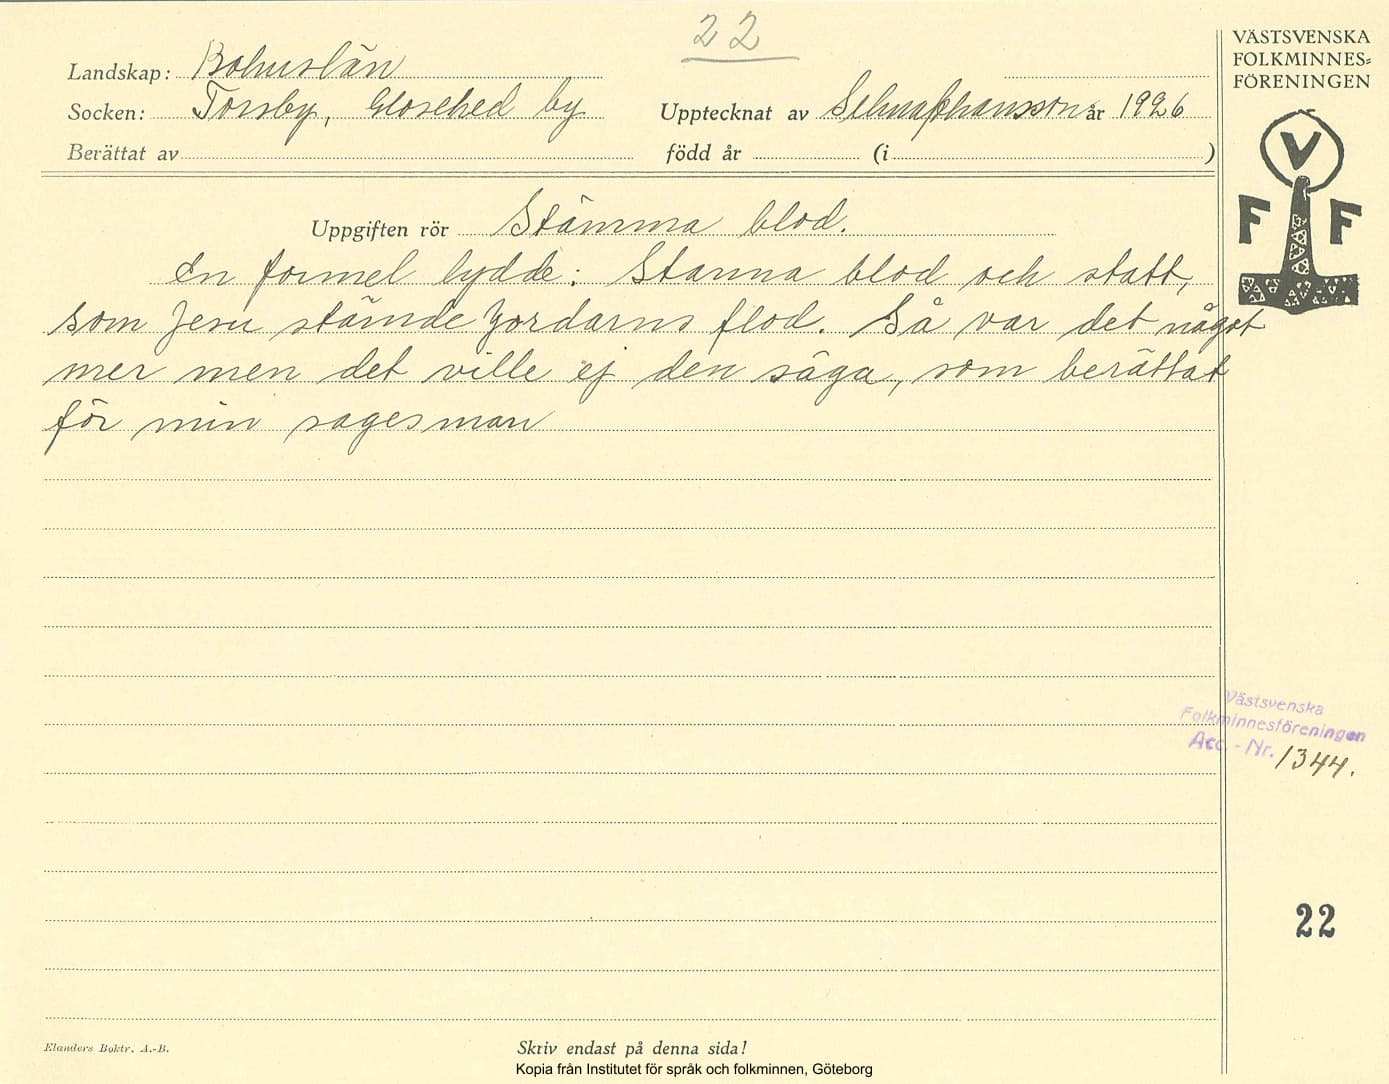 22
VÄSTSVENSKA
FOLKMINNES-
FÖRENINGEN
Landskap: Bohuslän
Socken: Torsby, Glosehed by Upptecknat av Selma Johansson år 1926
Berättat av född år (i )
V
F F
Uppgiften rör Stämma blod.
En formel lydde: Stanna blod och statt,
som Jesu stämde Jordarns flod. Så var det något
mer men det ville ej den säga, som berättat
för min sagesman
Västsvenska
Folkminnesföreningen
Acc. - Nr. 1344.
22
Elanders Boktr. A.-B.
Skriv endast på denna sida!
Kopia från Institutet för språk och folkminnen, Göteborg